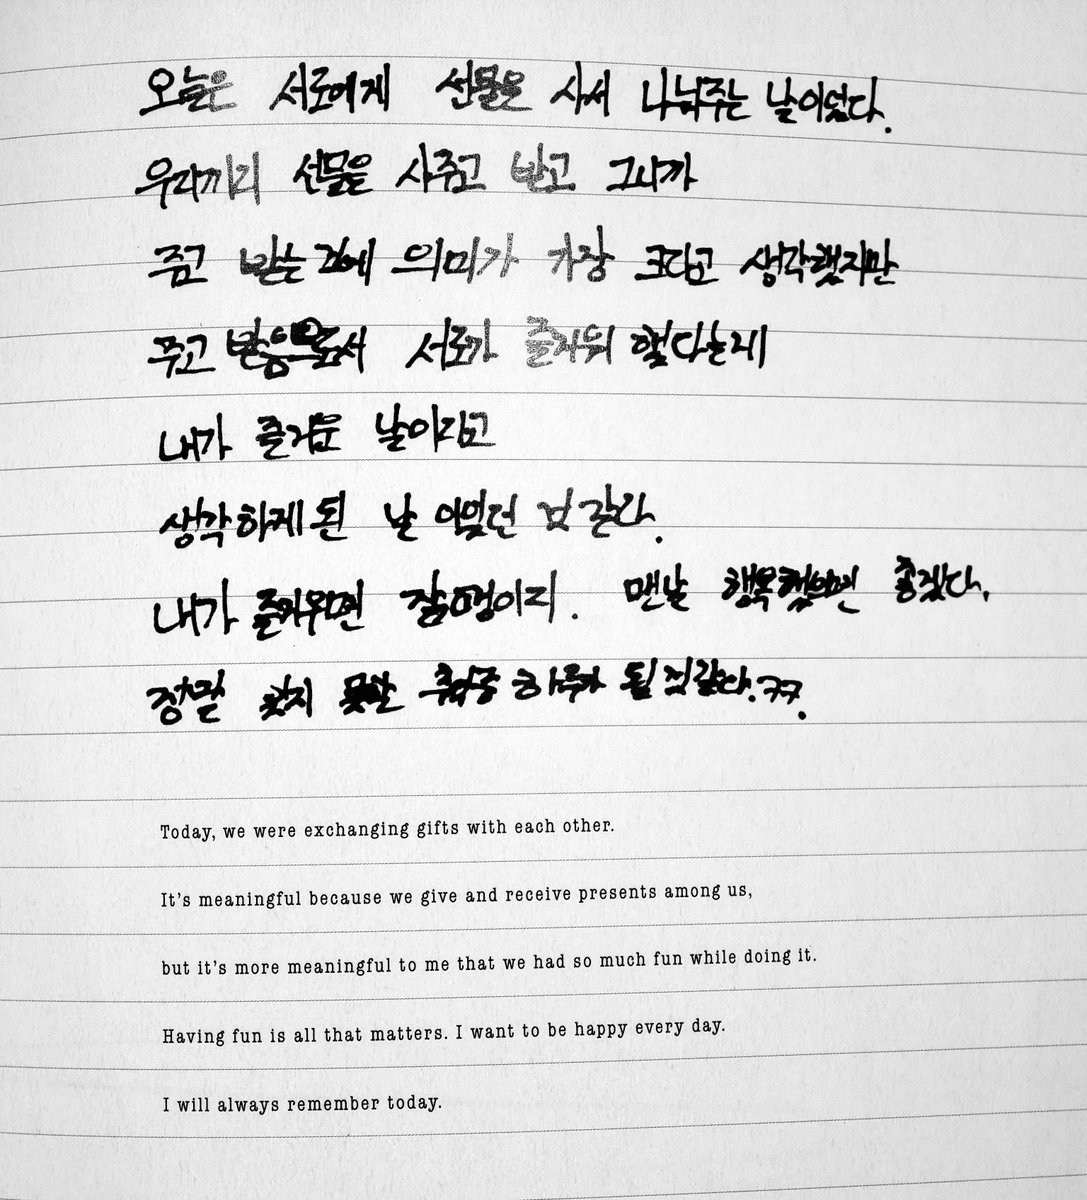 오늘은 서로에게 선물을 사서 나눠주는 날이었다.
우리끼리 선물을 사주고 받고 그니까
주고 받는거에 의미가 가장 크다고 생각했지만
주고 받음으로서 서로가 즐거워 했다는데
내가 즐거운 날이라고
생각하게 된 날 이었던 것 같다.
내가 즐거우면 장땡이지. 맨날 행복했으면 좋겠다.
정말 잊지 못할 하루가 될 것 같다.ㅋㅋ.
Today, we were exchanging gifts with each other.
It's meaningful because we give and receive presents among us,
but it's more meaningful to me that we had so much fun while doing it.
Having fun is all that matters. I want to be happy every day.
I will always remember today.